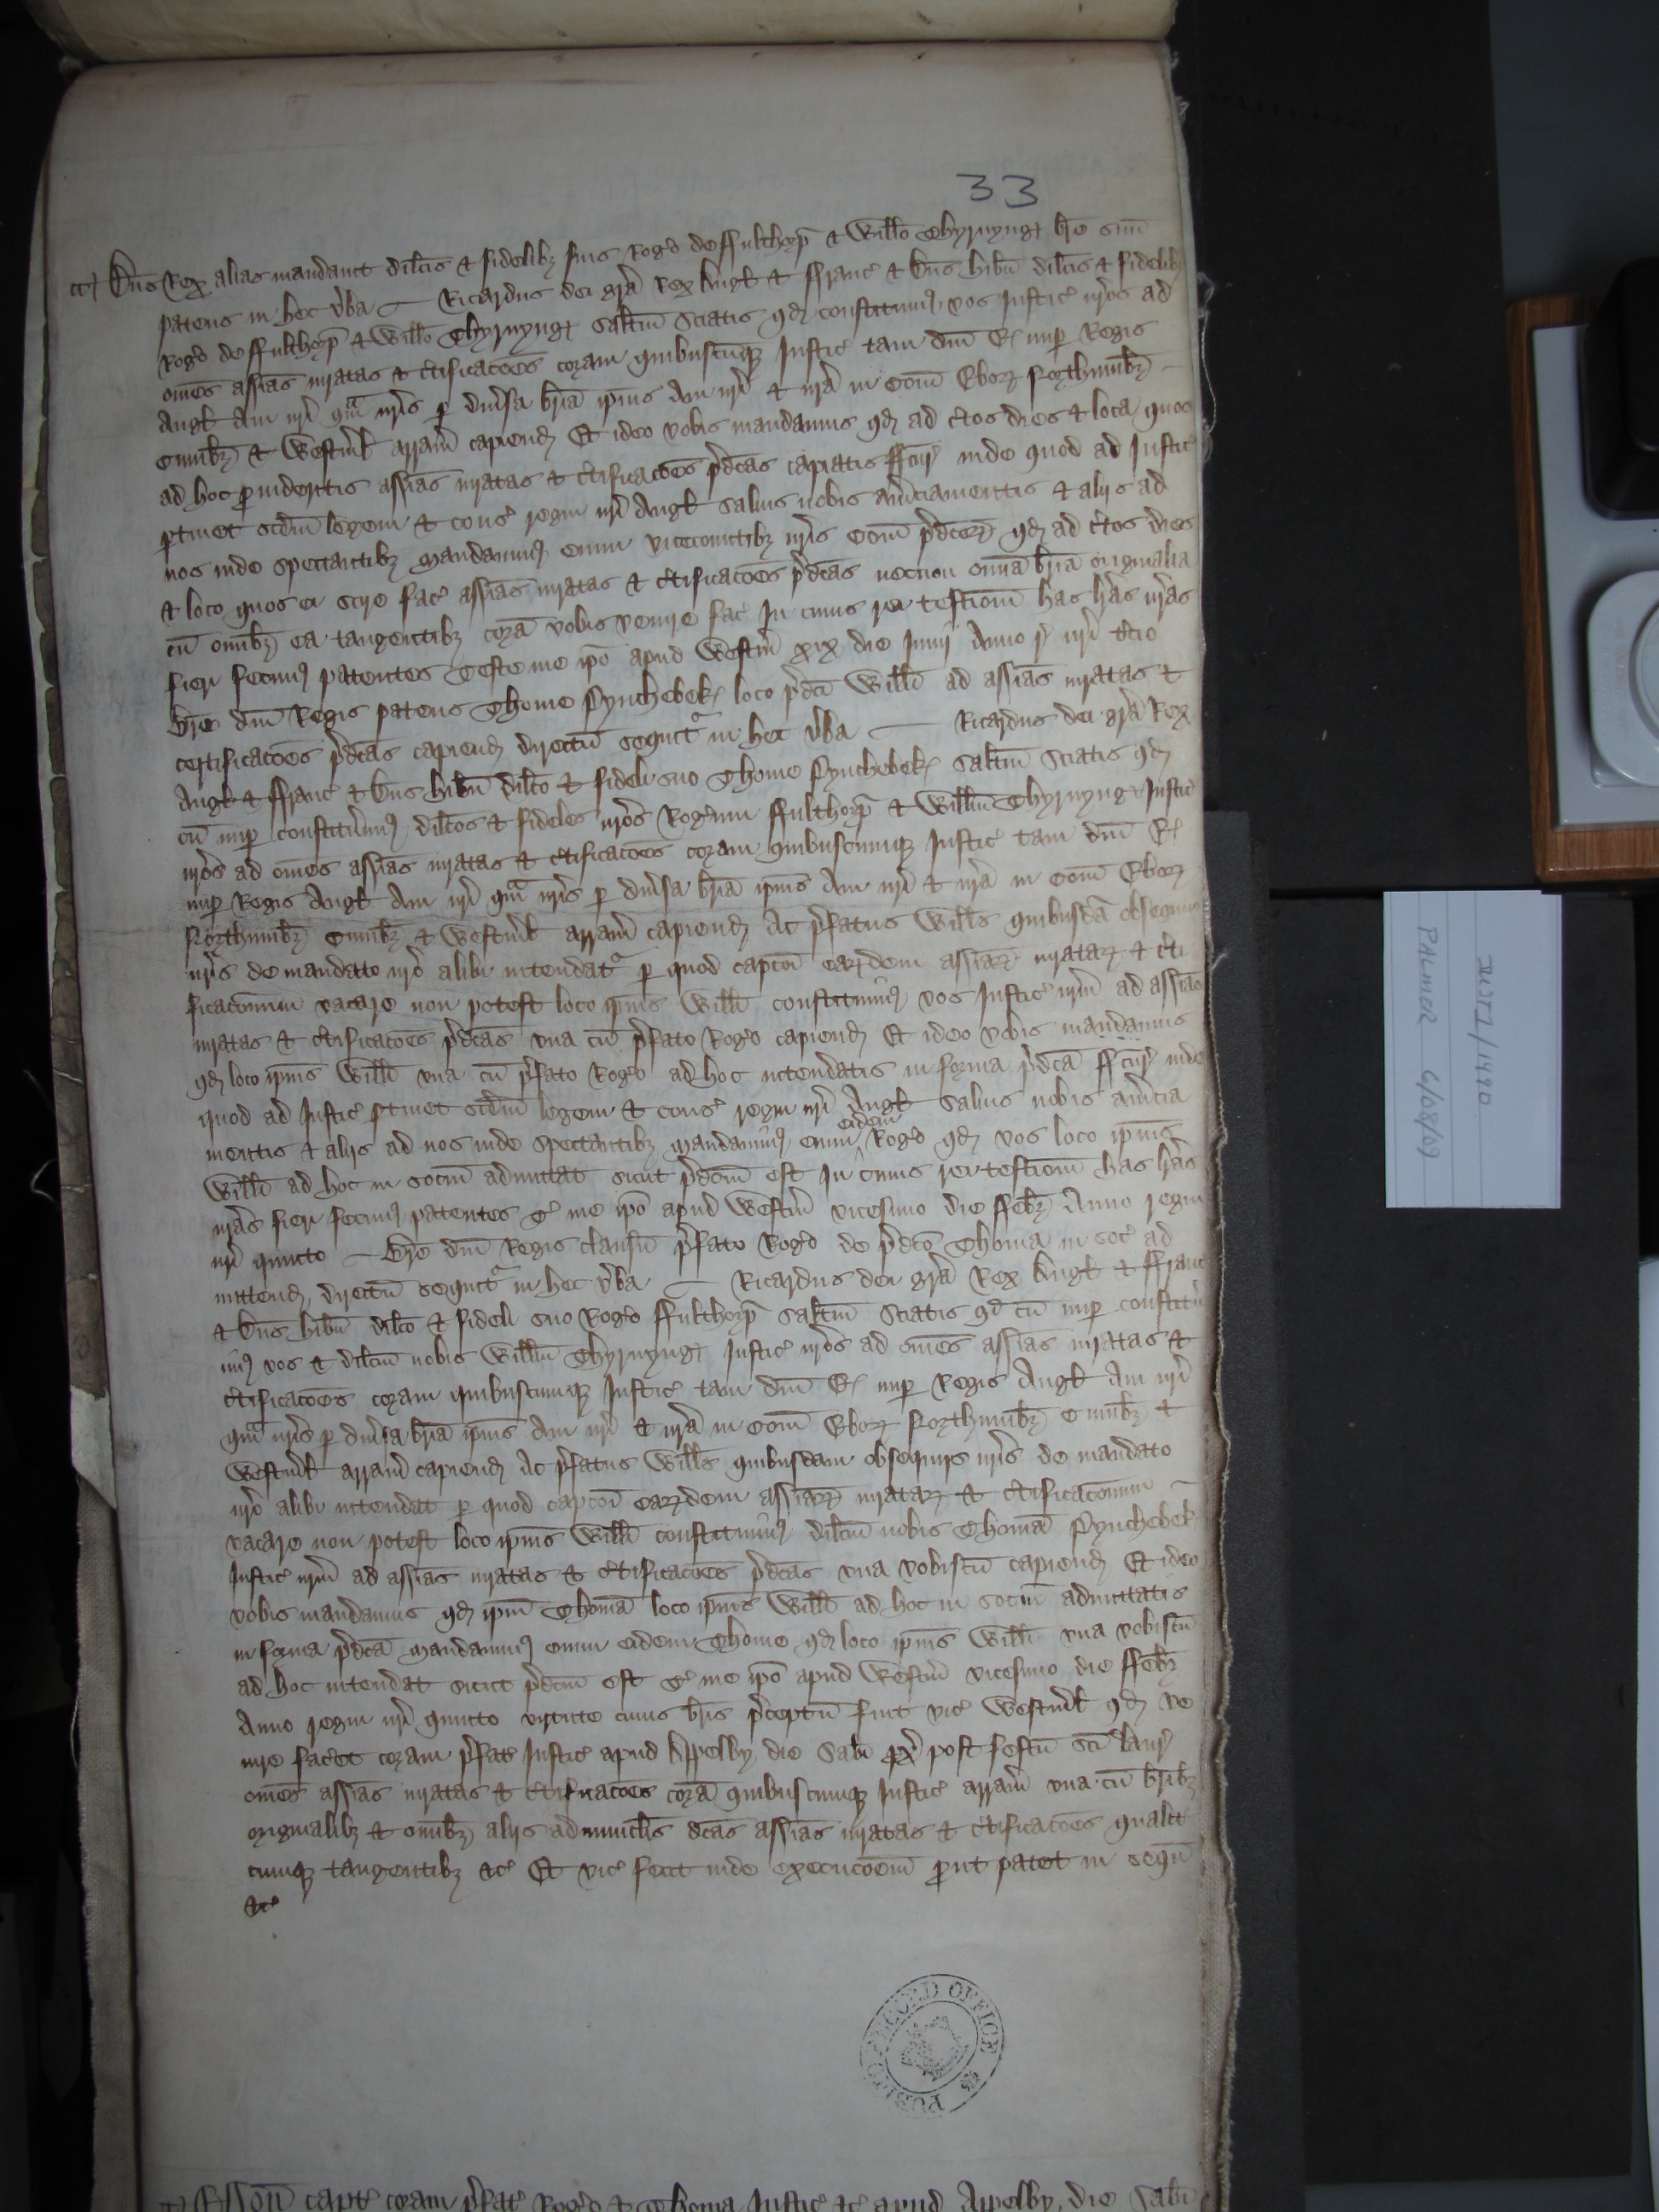 33
Dn̄s Rex alias mandauit dil̄cis & fidelibȝ suis Rog̾o de ffulthorp̄ & Will̄o Thyrnyng br̄e suū
patens in hec v̾ba — Ricardus dei gr̄a Rex Angl̄ & ffranc̾ & Dn̄s Hib̄n dil̄cis & fidelibȝ
Rog̾o de ffulthorp̄ & Will̄o Thyrnyng Sal̄tm Sciatis qd̄ constituim̾ vos Justic̾ nr̄os ad
om̄es assīas iuratas & c̾tificac̄oes coram quibuscūqȝ Justic̾ tam dn̄i E nup̄ Regis
Angl̄ Aui nr̄i qᵃm nr̄is p̄ diu̾sa br̄ia ip̄ius Aui nr̄i & nr̄a in Com̄ Ebor̄ Northumbr̄
Cumbr̄ & Westm̾l arraiat̄ capiend̄ Et ideo vobis mandamus qd̄ ad c̾tos dies & loca quos
ad hoc p̄uideritis assīas iuratas & c̾tificac̄oes p̾dc̄as capiatis ffc̄ur̾ inde quod ad Justic̾
p̄tinet scd̄m legem & cons̾ regni nr̄i Angl̄ Saluis nobis am̾ciamentis & aliis ad
nos inde spectantibȝ Mandauim̾ enim vicecomitibȝ nr̄is Com̄ p̾dc̄oꝝ qd̄ ad c̾tos dies
& loca quos ei scire fac̾ assīas iuratas & c̾tificac̄oes p̾dc̄as necnon om̄ia br̄ia originalia
cū om̄ibȝ ea tangentibȝ corā vobis venire fac̾ In cuius rei testīom has l̄ras nr̄as
fieri fecim̾ patentes Teste me ip̄o apud Westm̄ xix die Junii Anno r̾ nr̄i t̾cio
Br̄e dn̄i Regis patens Thome Pynchebek loco p̾dc̄i Will̄i ad assīas iuratas &
certificac̄oes p̾dc̄as capiend̄ directū sequitᵃ in hec v̾ba — Ricardus dei gr̄a Rex
Angl̄ & ffranc̾ & Dn̄s Hib̄n dil̄co & fideli suo Thome Pynchebek Sal̄tm Sciatis qd̄
cū nup̄ constitu̾im̾ dil̄cos & fideles nr̄os Rog̾um ffulthorp̄ & Will̄m Thyrnyng Justic̾
nr̄os ad om̄es assīas iuratas & c̾tificac̄oes coram quibuscumqȝ Justic̾ tam dn̄i E
nup̄ Regis Angl̄ Aui nr̄i qᵃm nr̄is p̄ diu̾sa br̄ia ip̄ius Aui nr̄i & nr̄a in Com̄ Ebor̄
Northumbr̄ Cumbr̄ & Westm̾l arraiat̄ capiend̄ Ac p̾fatus Will̄s quibusdā obsequiis
nr̄is de mandato nr̄o alibi intendatᵃ p̄ quod capc̄oi eaꝝdem assīaꝝ iurataꝝ & c̾ti
ficac̄onum vacare non potest loco ip̄ius Will̄i constituim̾ vos Justic̾ nr̄m ad assīas
iuratas & c̾tificac̄oes p̾dc̄as vna cū p̾fato Rog̾o capiend̄ Et ideo vobis mandamus
qd̄ loco ip̄ius Will̄i vna cū p̾fato Rog̾o ad hoc intendatis in forma p̾dc̄a ffc̄ur̾ inde
quod ad Justic̾ p̄tinet scd̄m legem & cons̾ regni nr̄i Angl̄ Saluis nobis am̾cia
mentis & aliis ad nos inde spectantibȝ Mandauim̾ enim eidem Rog̾o qd̄ vos loco ip̄ius
Will̄i ad hoc in socium admittat sicut p̾dc̄m est In cuius rei testīom has l̄ras
nr̄as fieri fecim̾ patentes T̾ me ip̄o apud Westm̄ vicesimo die ffebr̄ Anno regni
nr̄i quinto — Br̄e dn̄i Regis clausū p̾fato Rog̾o de p̾dc̄o Thoma in soc̾ ad
mittend̄ directū sequitᵃ in hec v̾ba — Ricardus dei gr̄a Rex Angl̄ & ffranc̾
& Dn̄s Hib̄n dil̄co & fideli suo Rog̾o ffulthorp̄ Sal̄tm Sciatis qd̄ cū nup̄ constitu̾
im̾ vos & dil̄cm nobis Will̄m Thyrnyng Justic̾ nr̄os ad om̄es assīas iuratas &
c̾tificac̄oes coram quibuscumqȝ Justic̾ tam dn̄i E nup̄ Regis Angl̄ Aui nr̄i
qᵃm nr̄is p̄ diu̾sa br̄ia ip̄ius Aui nr̄i & nr̄a in Com̄ Ebor̄ Northumbr̄ Cumbr̄ &
Westm̾l arraiat̄ capiend̄ Ac p̾fatus Will̄s quibusdam obsequiis nr̄is de mandato
nr̄o alibi intendat p̄ quod capc̄oi eaꝝdem assīaꝝ iurataꝝ & c̾tificac̄onum
vacare non potest loco ip̄ius Will̄i constituim̾ dil̄cm nobis Thomā Pynchebek
Justic̾ nr̄m ad assīas iuratas & c̾tificac̄oes p̾dc̄as vna vobiscū capiend̄ Et ideo
vobis mandamus qd̄ ip̄m Thomā loco ip̄ius Will̄i ad hoc in socium admittatis
in forma p̾dc̄a Mandauim̾ enim eidem Thome qd̄ loco ip̄ius Will̄i vna vobiscū
ad hoc intendat sicut p̾dc̄m est T̾ me ip̄o apud Westm̄ vicesimo die ffebr̄
Anno regni nr̄i quinto virtute cuius br̄is p̾ceptū fuit vic̾ Westm̾l qd̄ ve
nire fac̾et coram p̾fat̾ Justic̾ apud Appelby die Sab̄i px̄ post festū sc̄i Laur̾
om̄es assīas iuratas & c̾tificac̄oes corā quibuscumqȝ Justic̾ arraiat̄ vna cū br̄ibȝ
originalibȝ & om̄ibȝ aliis adminic̄lis dc̄as assīas iuratas & c̾tificac̄oes qualit̾
cumqȝ tangentibȝ &c̾ Et vic̾ fecit inde execuc̄oem p̄ut patet in sequn̄
&c̾
PUBLIC RECORD OFFICE
Esson̄ capt̾ coram p̾fat̾ Rog̾o & Thoma Justic̾ &c̾ apud Appelby die Sab̄i
JUST1/1490
PALMER 6/08/09